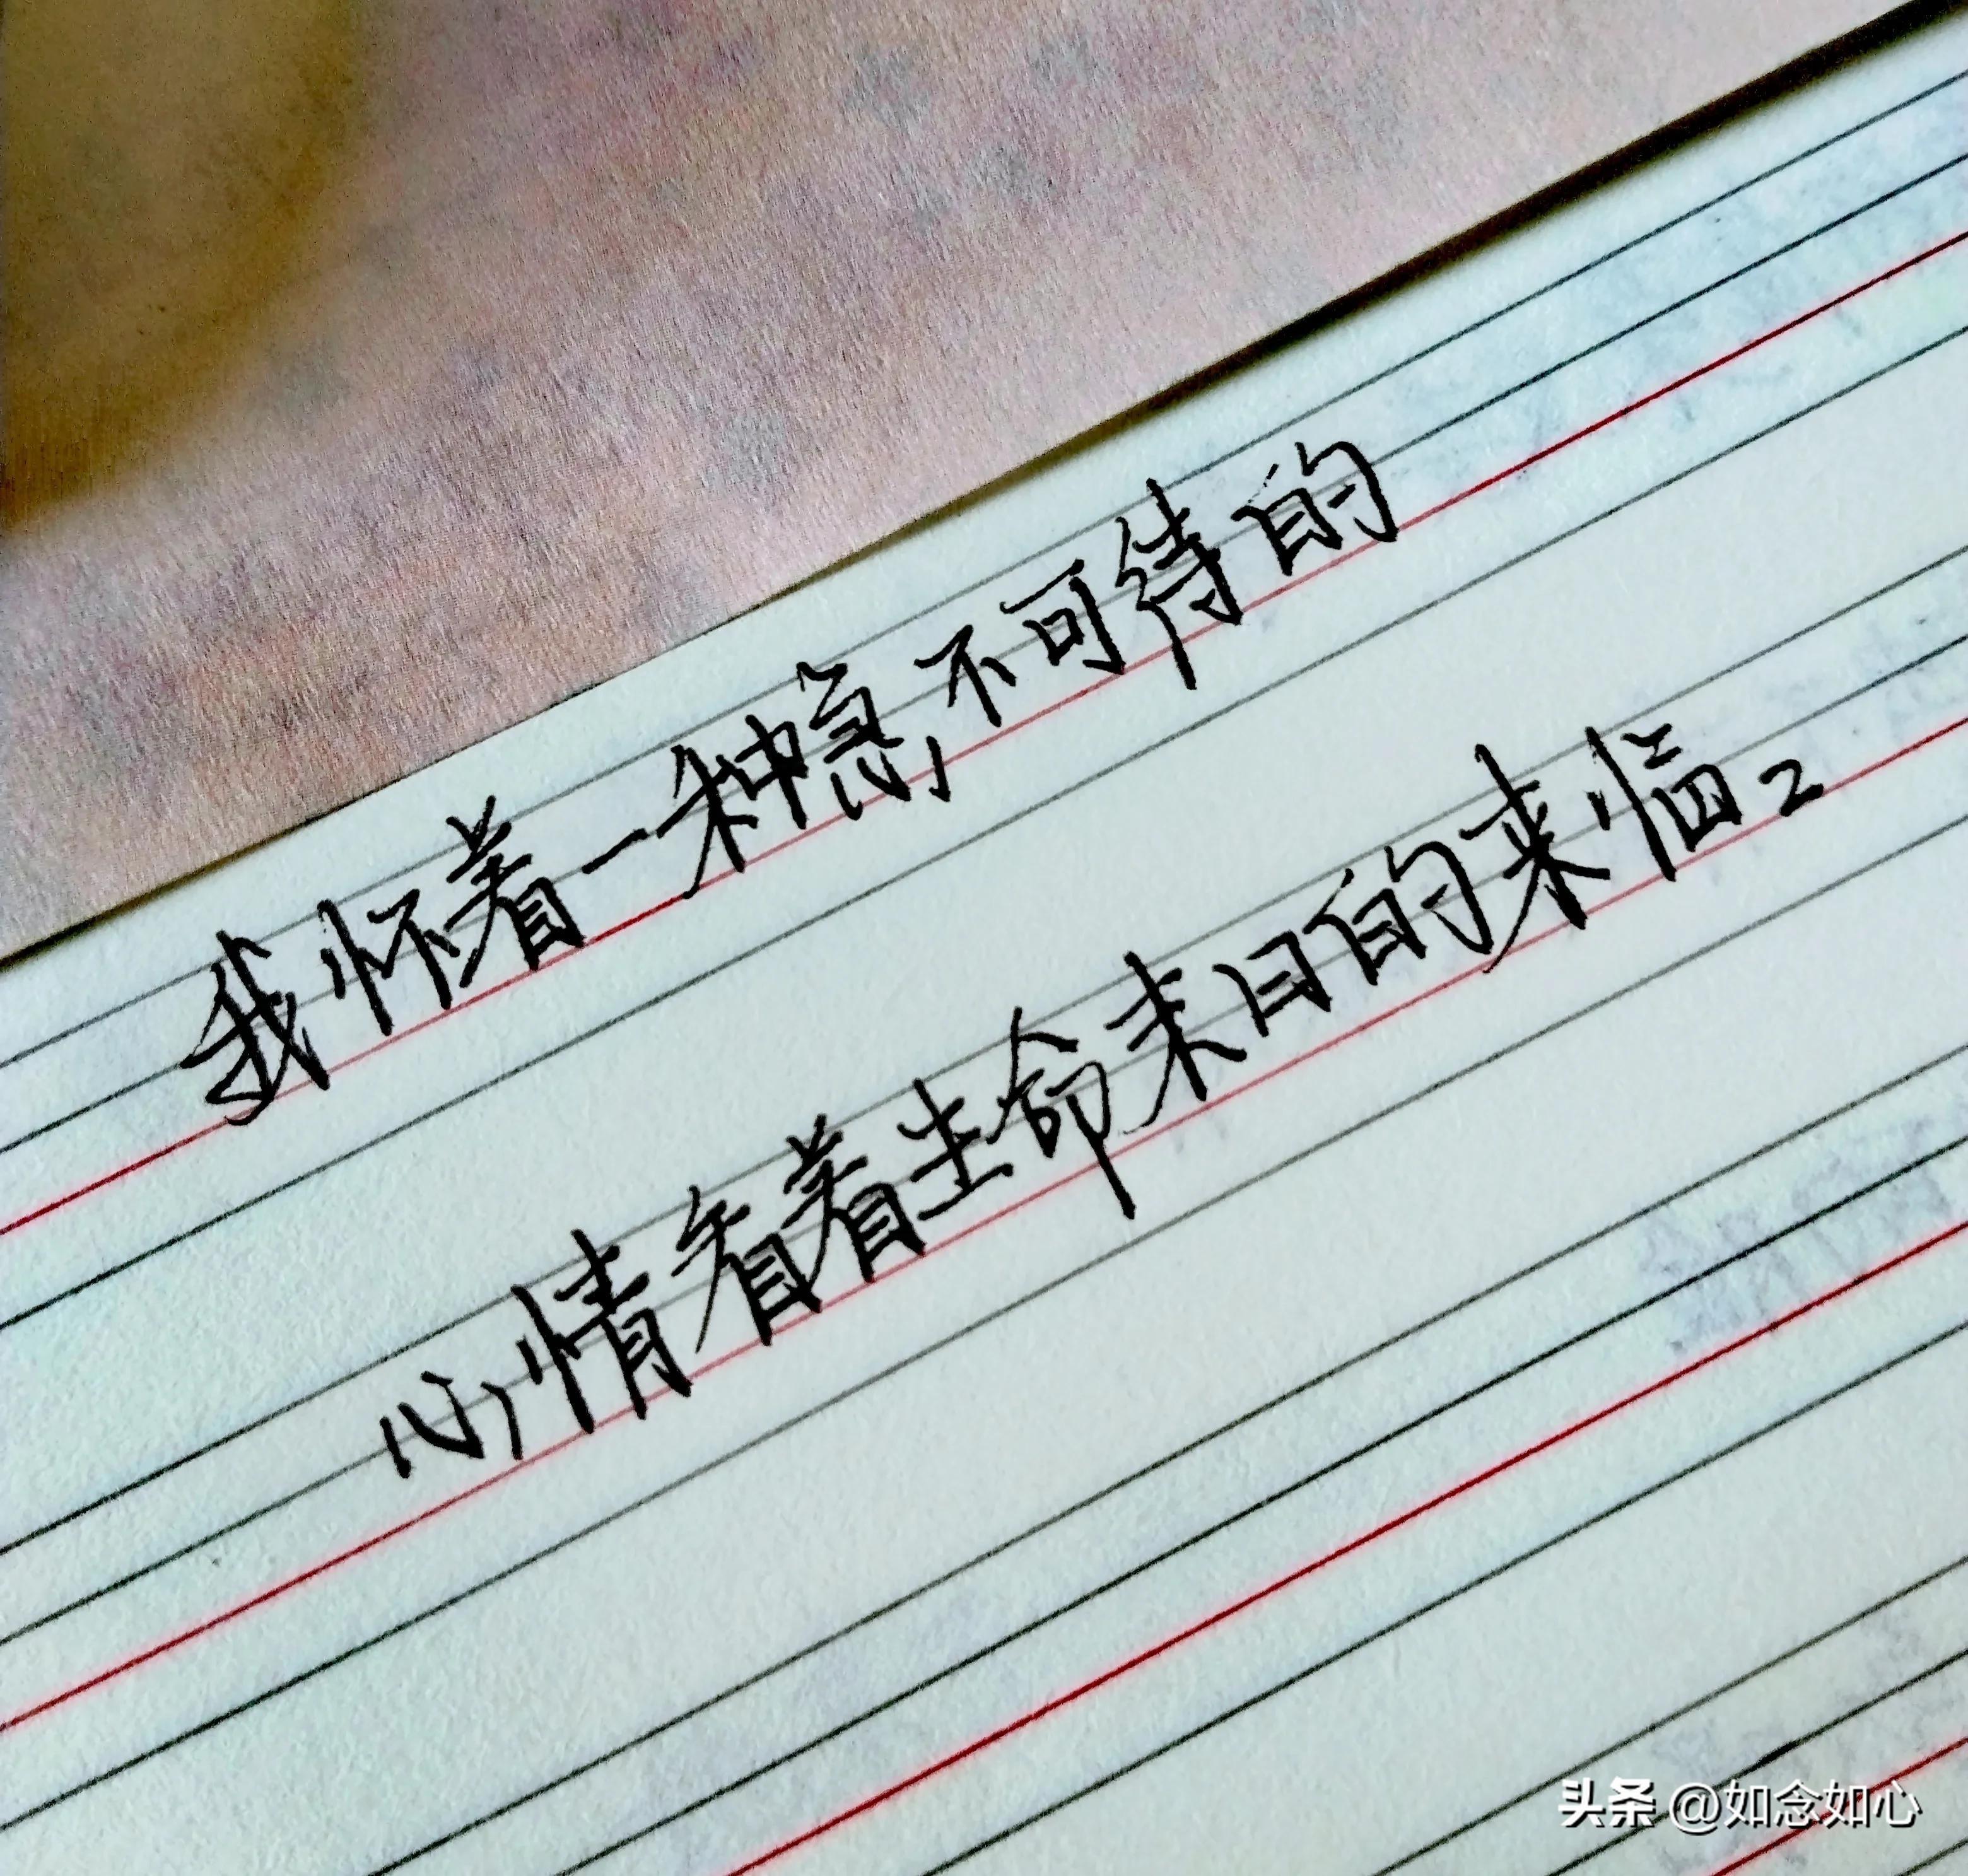 我怀着一种急不可待的
心情看着生命来日的来临。
头条 @如念如心